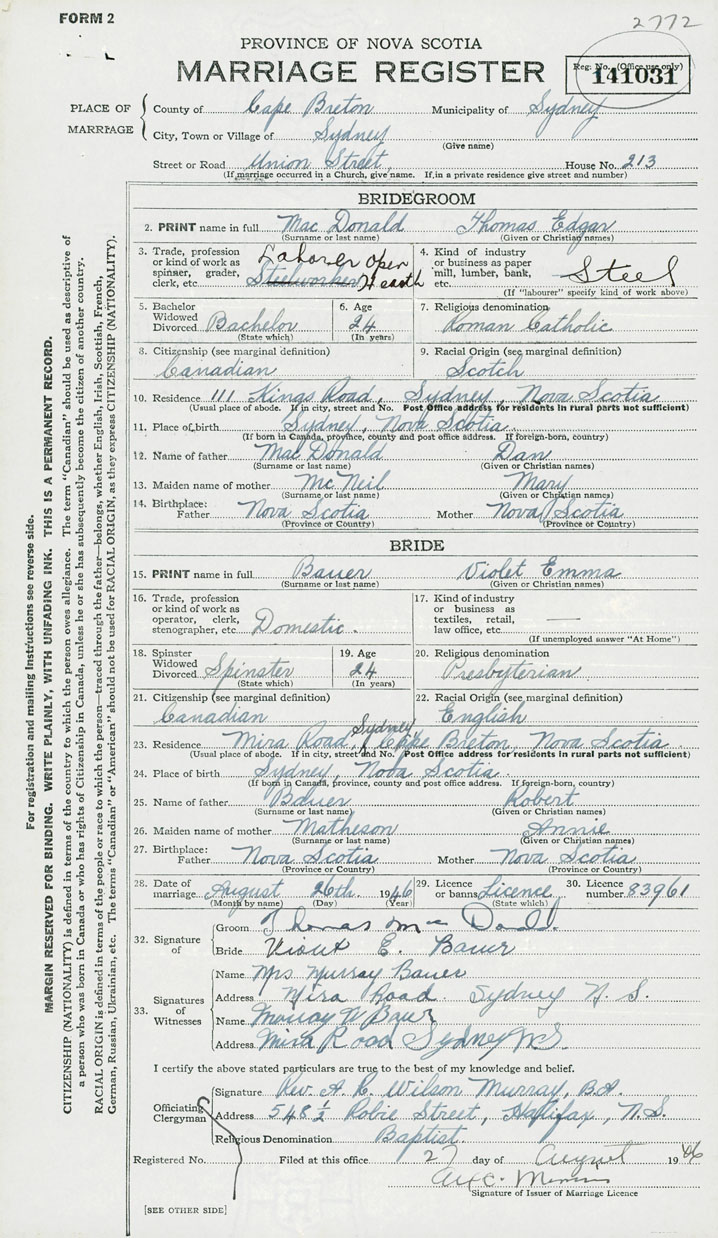 FORM 2
2772
PROVINCE OF NOVA SCOTIA
MARRIAGE REGISTER
Reg. No. (Office use only)
141031
PLACE OF MARRIAGE
County of Cape Breton Municipality of Sydney
City, Town or Village of Sydney
(Give name)
Street or Road Union Street, House No. 213
(If marriage occurred in a Church, give name. If in a private residence give street and number)
BRIDEGROOM
2. PRINT name in full Mac Donald Thomas Edgar
(Surname or last name) (Given or Christian names)
3. Trade, profession or kind of work as spinner, grader, clerk, etc. Laborer Open Steelworker Hearth
4. Kind of industry or business as paper mill, lumber, bank, etc. Steel
(If "labourer" specify kind of work above)
5. Bachelor Widowed Divorced Bachelor
(State which)
6. Age 24
(In years)
7. Religious denomination
Roman Catholic
8. Citizenship (see marginal definition)
Canadian
9. Racial Origin (see marginal definition)
Scotch
10. Residence 111 Kings Road, Sydney, Nova Scotia
(Usual place of abode. If in city, street and No. Post Office address for residents in rural parts not sufficient)
11. Place of birth Sydney, Nova Scotia
(If born in Canada, province, county and post office address. If foreign-born, country)
12. Name of father Mac Donald Dan
(Surname or last name) (Given or Christian names)
13. Maiden name of mother Mc Neil Mary
(Surname or last name) (Given or Christian names)
14. Birthplace: Father Nova Scotia Mother Nova Scotia
(Province or Country) (Province or Country)
BRIDE
15. PRINT name in full Bauer Violet Emma
(Surname or last name) (Given or Christian names)
16. Trade, profession or kind of work as operator, clerk, stenographer, etc. Domestic.
17. Kind of industry or business as textiles, retail, law office, etc. —
(If unemployed answer "At Home")
18. Spinster Widowed Divorced Spinster
(State which)
19. Age 24
(In years)
20. Religious denomination
Presbyterian
21. Citizenship (see marginal definition)
Canadian
22. Racial Origin (see marginal definition)
English
Sydney
23. Residence Mira Road, Cape Breton, Nova Scotia
(Usual place of abode. If in city, street and No. Post Office address for residents in rural parts not sufficient)
24. Place of birth Sydney, Nova Scotia.
(If born in Canada, province, county and post office address. If foreign-born, country)
25. Name of father Bauer Robert
(Surname or last name) (Given or Christian names)
26. Maiden name of mother Matheson Annie
(Surname or last name) (Given or Christian names)
27. Birthplace: Father Nova Scotia Mother Nova Scotia
(Province or Country) (Province or Country)
28. Date of marriage August 26th. 1946
(Month by name) (Day) (Year)
29. Licence or banns Licence
(State which)
30. Licence number 83961
32. Signature of
Groom Thomas Mac Donald.
Bride Violet E. Bauer
33. Signatures of Witnesses
Name Mrs. Murray Bauer
Address Mira Road. Sydney N. S.
Name Murray W Bauer
Address Mira Road Sydney N.S.
I certify the above stated particulars are true to the best of my knowledge and belief.
Officiating Clergyman
Signature Rev. A. R. Wilson Murray, B.A.
Address 548 ½ Robie Street, Halifax, N.S.
Religious Denomination Baptist.
Registered No. Filed at this office 27 day of August 1946
Signature of Issuer of Marriage Licence
[SEE OTHER SIDE]
For registration and mailing instructions see reverse side.
MARGIN RESERVED FOR BINDING. WRITE PLAINLY, WITH UNFADING INK. THIS IS A PERMANENT RECORD.
CITIZENSHIP (NATIONALITY) is defined in terms of the country to which the person owes allegiance. The term "Canadian" should be used as descriptive of
a person who was born in Canada or who has rights of Citizenship in Canada, unless he or she has subsequently become the citizen of another country.
RACIAL ORIGIN is defined in terms of the people or race to which the person—traced through the father—belongs, whether English, Irish, Scottish, French,
German, Russian, Ukrainian, etc. The terms "Canadian" or "American" should not be used for RACIAL ORIGIN, as they express CITIZENSHIP (NATIONALITY).